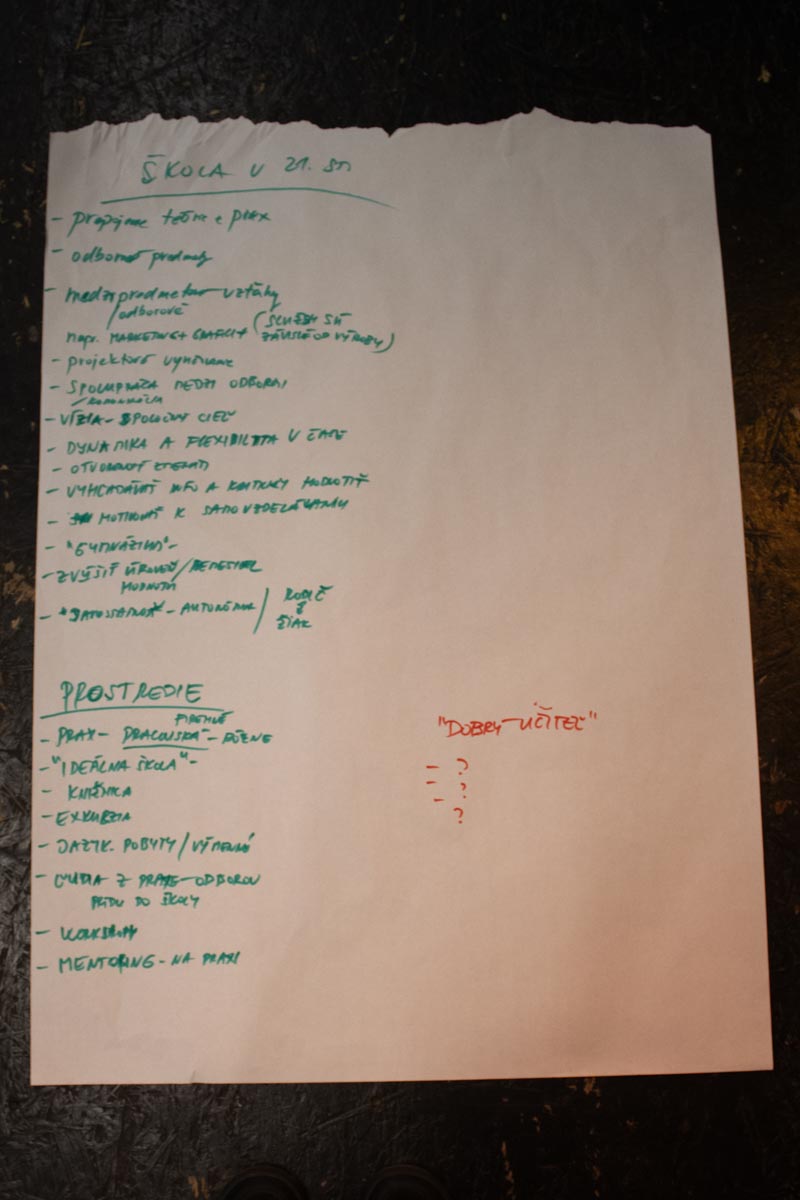 ŠKOLA V 21. ST.
- prepojenie teórie a prax
- odborné predmety
- medzipredmetové vzťahy
/odborové
napr. MARKETING + GRAFICI + (SLUŽBY SÚ
ZÁVISLÉ OD VÝROBY)
- projektové vyučovanie
- SPOLUPRÁCA MEDZI ODBORMI
/KOMUNIKÁCIA
- VÍZIA - SPOLOČNÝ CIEĽ
- DYNAMIKA A FLEXIBILITA V ČASE
- OTVORENOSŤ
- VYHĽADÁVAŤ INFO A KRITICKY HODNOTIŤ
- MOTIVOVAŤ K SAMOVZDELÁVANIU
- "GYMNÁZIUM" -
- ZVÝŠIŤ ÚROVEŇ / REMESIEL
HODNOTU
- AUTONÓMIA / RODIČ
ŽIAK
PROSTREDIE
FIREMNÉ
- PRAX - PRACOVISKÁ - RÔZNE
- "IDEÁLNA ŠKOLA" -
- KNIŽNICA
- EXKURZIA
- JAZYK. POBYTY / VÝMENNÉ
- ĽUDIA Z PRAXE - ODBOROV
PRÍDU DO ŠKOLY
- WORKSHOPY
- MENTORING - NA PRAXI
"DOBRÝ UČITEĽ"
- ?
- ?
- ?